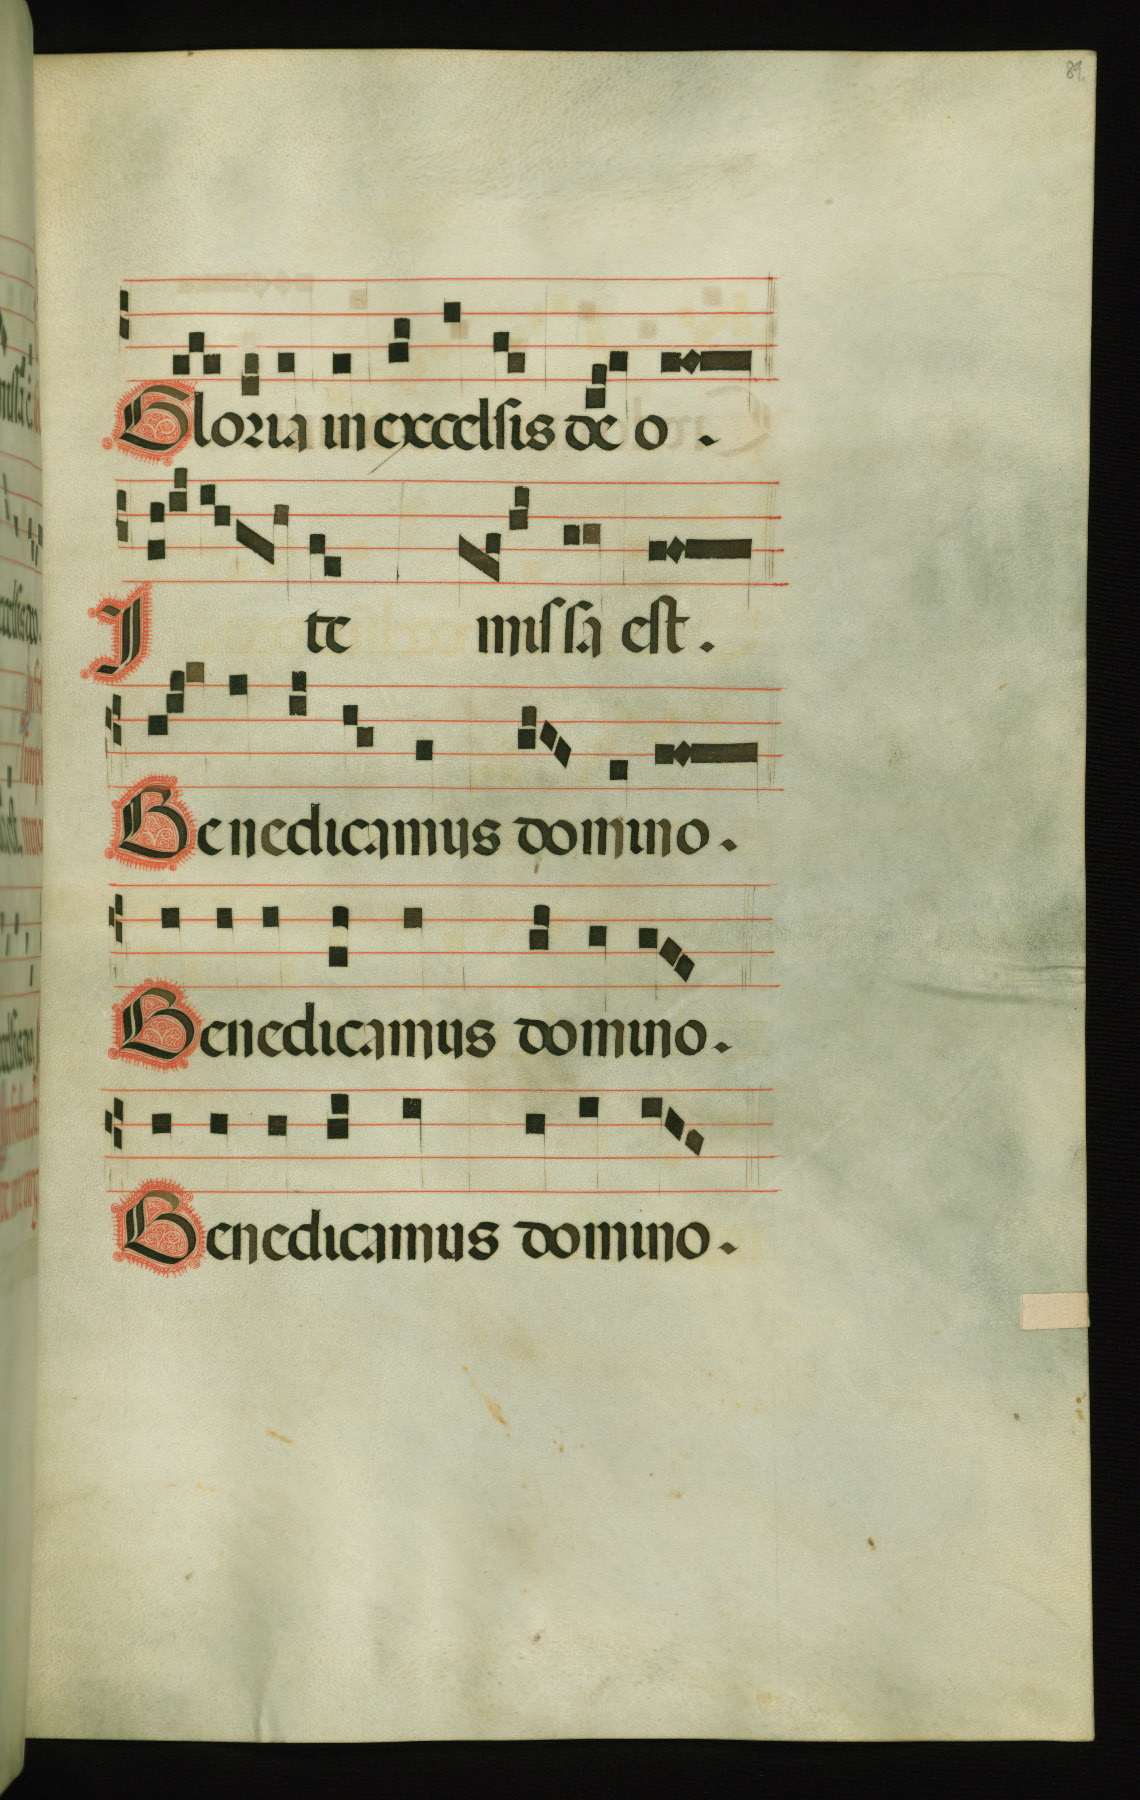 89.
Gloria in excelsis de o .
Ite missa est .
Benedicamus domino .
Benedicamus domino .
Benedicamus domino .